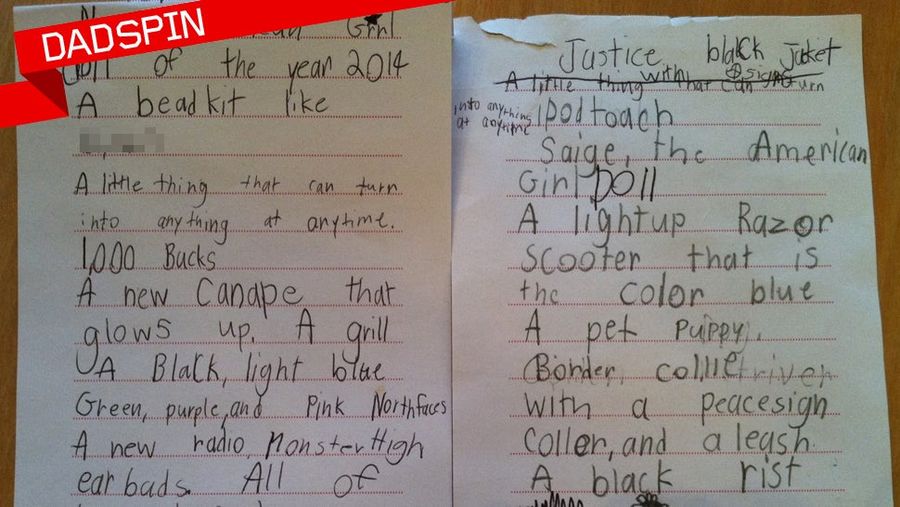 DADSPIN
Girl
of the year 2014
A bead kit like
A little thing that can turn
into anything at anytime.
1,000 Backs
A new Canape that
glows up. A grill
A Black, light blue
Green, purple, and Pink Northfaces
A new radio, Monster High
ear bads. All of
Justice black Jaket
with
A little thing that can turn
into anything
at anytime
ipod toach
Saige, the American
Girl Doll
A lightup Razor
Scooter that is
the color blue
A pet puppy.
Border, collie
with a peacesign
coller, and a leash.
A black rist